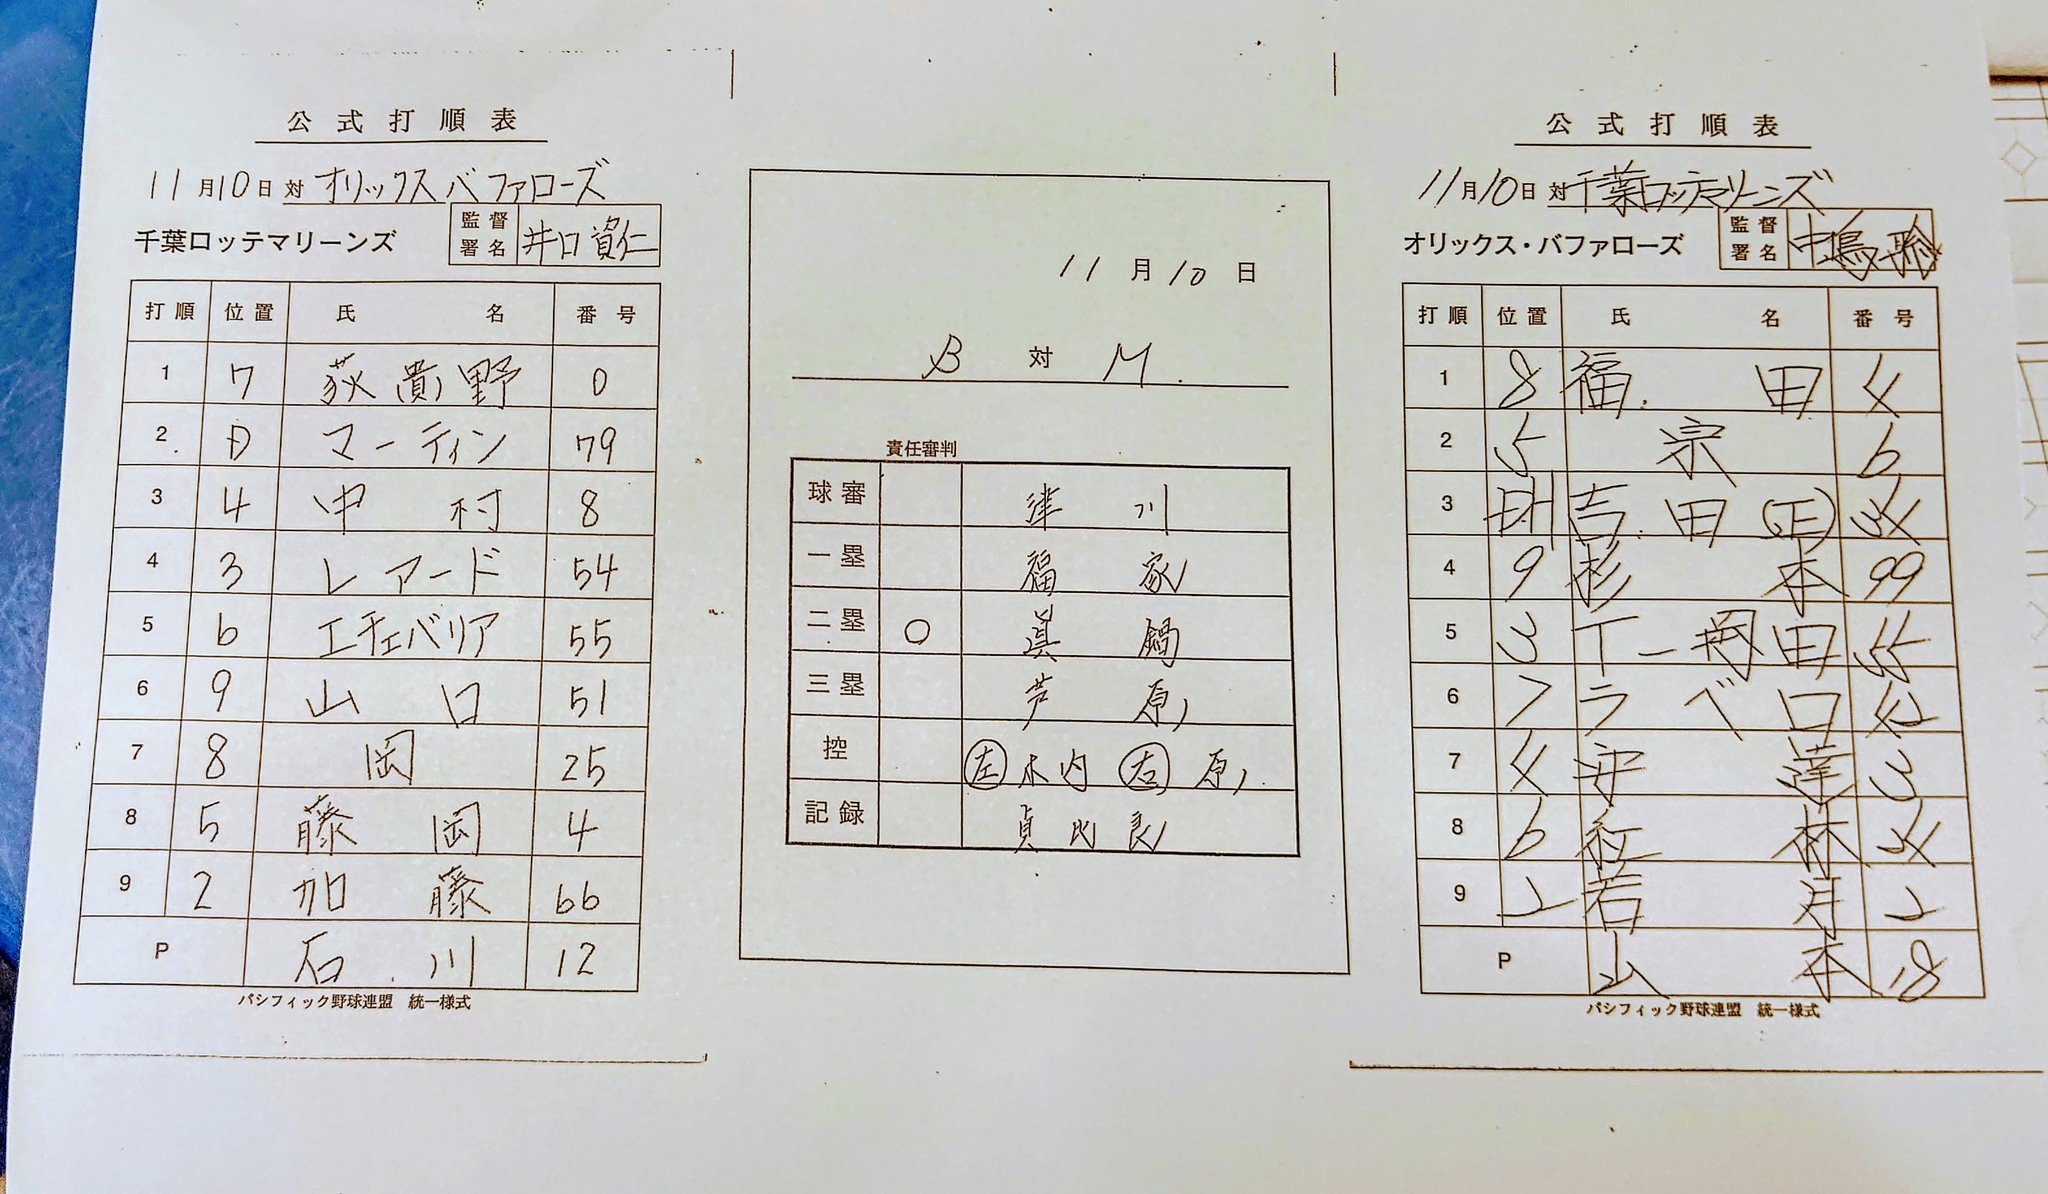 公式打順表
11月10日 対 オリックスバファローズ
千葉ロッテマリーンズ 監督署名 井口資仁
打順 位置 氏名 番号
1 7 荻貴野 0
2 D マーティン 79
3 4 中村 8
4 3 レアード 54
5 6 エチェバリア 55
6 9 山口 51
7 8 岡 25
8 5 藤岡 4
9 2 加藤 66
P 石川 12
パシフィック野球連盟 統一様式
11月10日
B 対 M
責任審判
球審 津川
一塁 福家
二塁 ○ 眞鍋
三塁 芦原
控 左 木内 右 原
記録 貞比良
公式打順表
11月10日 対 千葉ロッテマリーンズ
オリックス・バファローズ 監督署名 中嶋聡
打順 位置 氏名 番号
1 8 福田 4
2 5 宗 6
3 DH 吉田(正) 34
4 9 杉本 99
5 3 T-岡田 55
6 7 ラベロ 42
7 4 安達 3
8 6 紅林 24
9 2 若月 2
P 山本 18
パシフィック野球連盟 統一様式